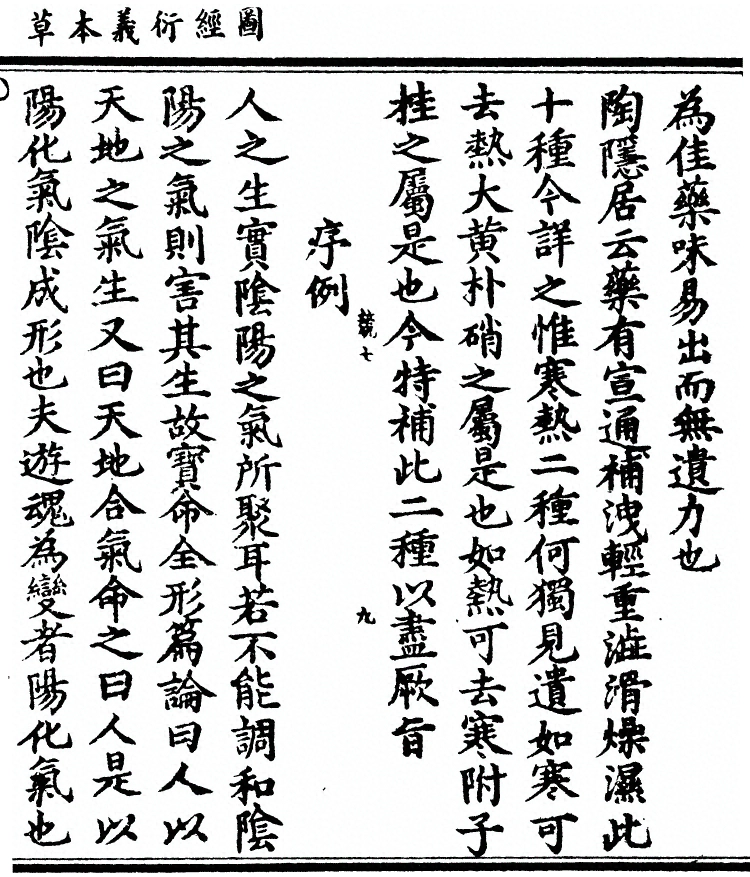 圖經衍義本草
為佳藥味易出而無遺力也
陶隱居云藥有宣通補洩輕重澁滑燥濕此
十種今詳之惟寒熱二種何獨見遺如寒可
去熱大黃朴硝之屬是也如熱可去寒附子
桂之屬是也今特補此二種以盡厥旨
序例
競七
九
人之生實陰陽之氣所聚耳若不能調和陰
陽之氣則害其生故寶命全形篇論曰人以
天地之氣生又曰天地合氣命之曰人是以
陽化氣陰成形也夫遊魂為變者陽化氣也